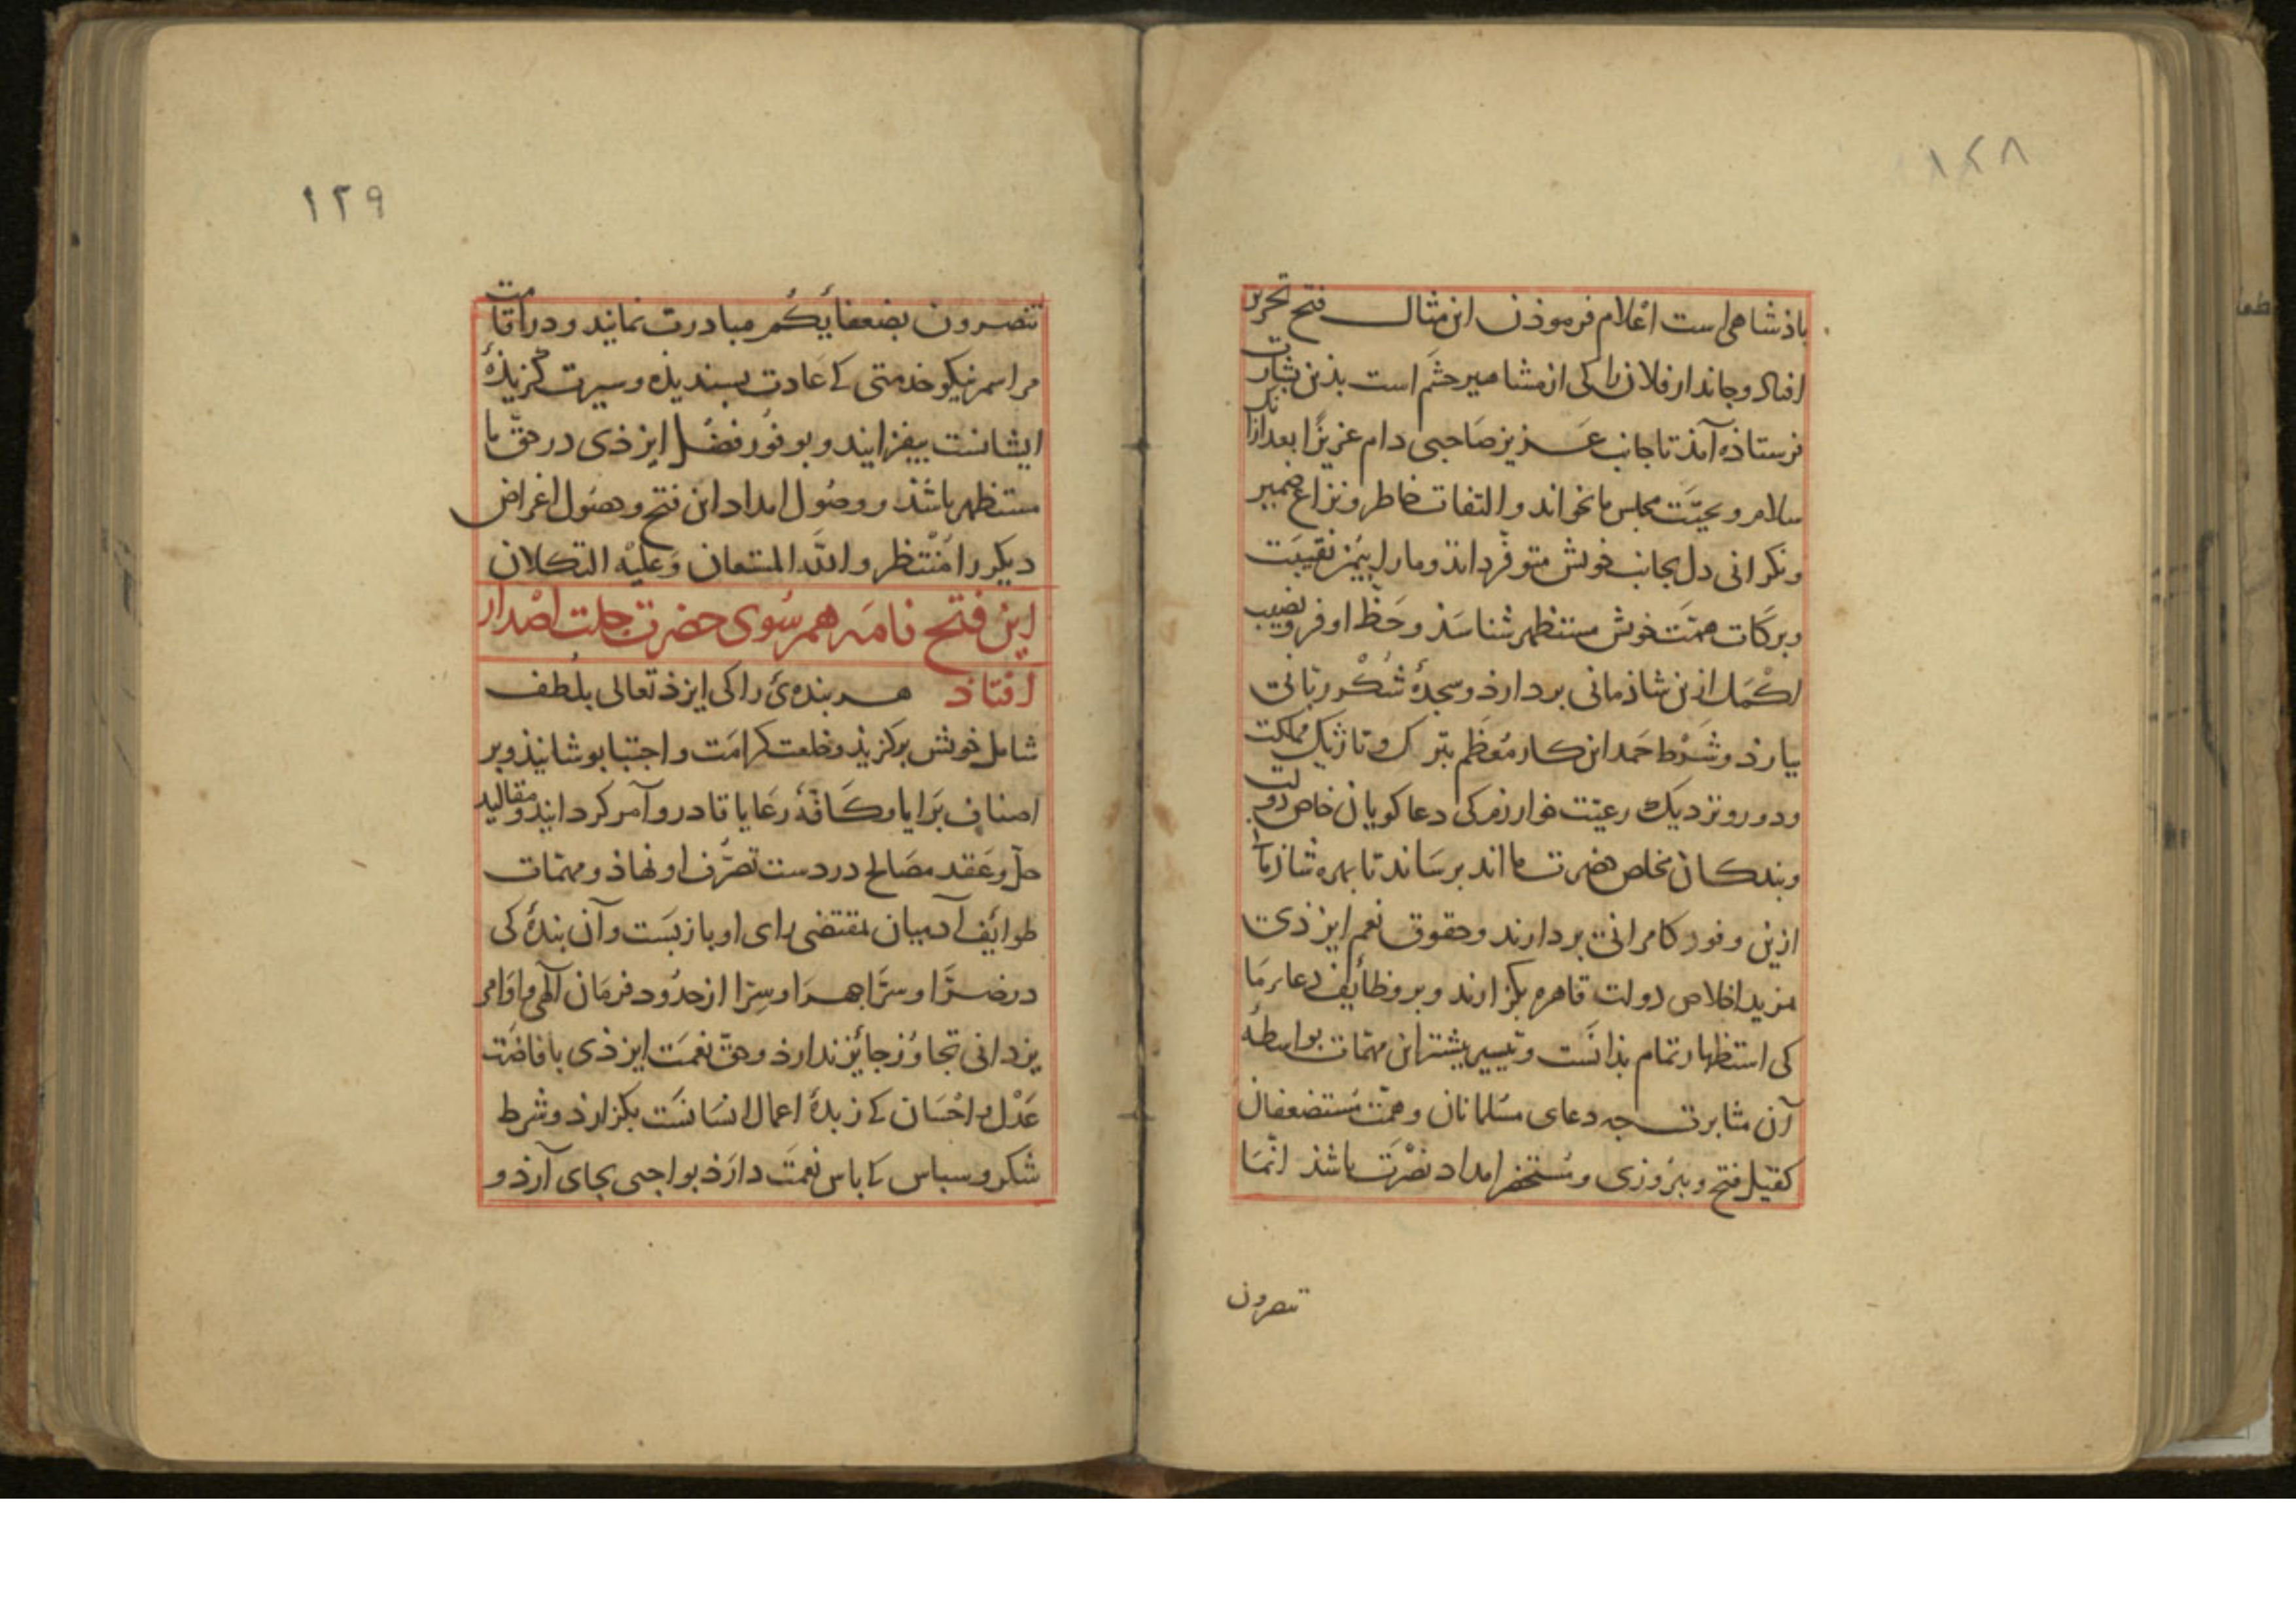 ١٢٨
باذشاهی است اعْلام فرموذن این مثال فتح تحریر
افتاد و جاندار فلان را کی از مشاهیر حشَم است بذین بشارت
فرستاذه آمذ تا جانب عَزیز صَاحبی دام عزیزًا بعد از آنک
سلام و تحیّت مجلس ما بخواند و التفات خاطر و نزاع ضمیر
و نکرانی دل بجانب خویش متوفّر داند و ما را بیُمن نقیبَت
و برکَات همّت خویش مستظهر شناسَذ و حَظّ اوفر و نصیب
اکْمَل ازین شاذمانی بردارذ و سجدهٔ شُکْر ربّانی
بیارذ و شَرْط حَمد این کار مُعظَم بترک و تازیک مملکت
و دور و نزدیک رعیّت خوارزم کی دعا کویان خاص دولت
و بندکان مخلص حضرت ما اند برسَاند تا بهره شاذمانی
ازین وفور کامرانی بردارند و حقوق نعم ایزذی
بمزید اخلاص دولت قاهره بکزارند و بر وظائف دعاء ما
کی استظهار تمام بذانَست و تیسیر بیشتر این مهمّات بواسطهٔ
آن مثابرت جه دعای مسُلمانان و همّت مُستضعفان
کفیل فتح و بیروزی و مُستحضر امداد نصْرَت باشذ انّمَا
تنصرون
١٢٩
تنصرون بضعفائِکُم مبادرت نمایند و در اقامت
مراسم نیکو خذمتی که عَادت بسندیذه و سیرت کزیذهٔ
ایشانست بیفزایند و بوفُور فضْل ایزذی در حقّ ما
مستظهر باشَذ و وصُول امداد این فتح و حصُول اغراض
دیکر را مُنْتظر و اللّه المستعان وَعَلیْه التکلان
این فتح نامَه هم سُوی حضرت جلت اصْدار
افتاذ هر بنده‌ئ را کی ایزذ تعالی بلُطف
شامل خویش برکزیذ و خلعت کرامَت و اجتبا بوشانیذ و بر
اصناف بَرَایا و کَافّهٔ رعَایا قادر و آمر کردانیذ و مقالید
حلّ و عَقد مصَالح در دست تصَرُّف او نهاذ و مهمّات
طوائِف آدمیان بمقتضی رای او بازبَست و آن بندهٔ کی
در ضرّا و سرّا جهرَا و سِرّا از حدُود فرمَان آلهی و اوَامر
یزدانی تجاوُز جائِز ندارذ و حقّ نعمَت ایزذی بافاضَت
عَدْل و احْسَان که زبدهٔ اعمال انسَانسَت بکزارذ و شرط
شکر و سباس که باس نعمَت دارَذ بواجبی بجای آرذ و